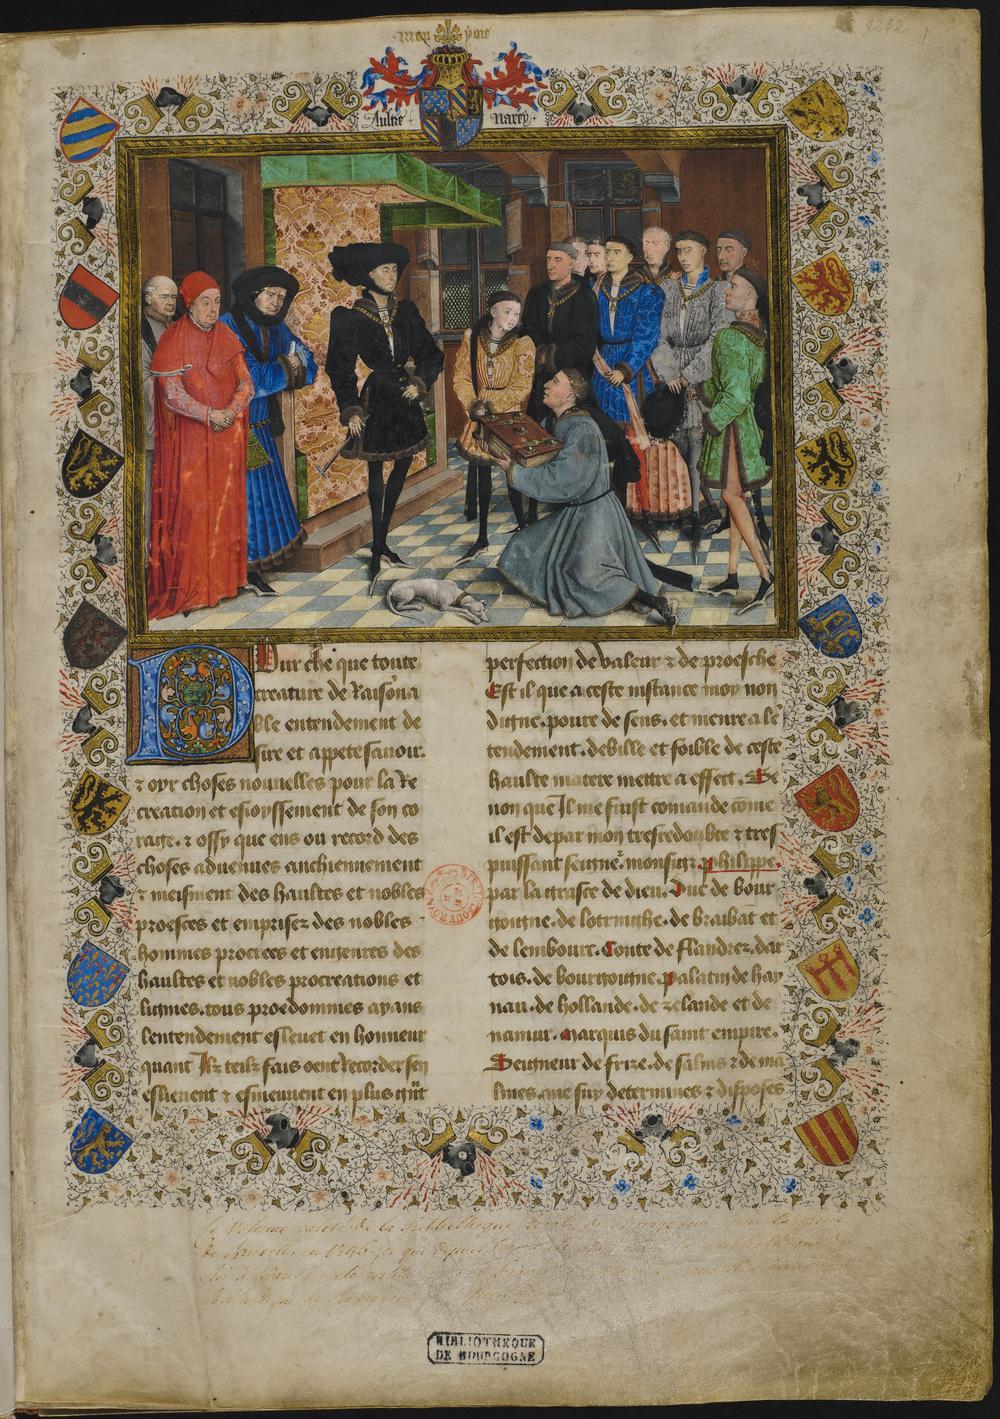 Mon yoie
Aultre Narey
Pur che que toute
creature de Raisona
ble entendement de
sire et appete sauoir.
⁊ oyr choses nouuelles pour la Re
creation et esioyssement de son co
rage. ⁊ ossy que ens ou record des
choses aduenues anchiennement
⁊ meisment des haultes et nobles
proesces et emprisez des nobles
hommes procrees et engenres des
haultes et nobles procreations et
lignies. tous proedommes ayans
lentendement esleuet en honneur
quant Ilz telz fais oent Recorder sen
eslieuent ⁊ esmeuuent en plus gñt
perfection de valeur ⁊ de proesche
Est il que a ceste instance moy non
digne. poure de sens. et menre a lē
tendement. debille et foible de ceste
haulte matere mettre a effect. Se
non que Il me fuist comande come
il est de par mon tresredoubte ⁊ tres
puissant seigne². monsigr philippe.
par la grasce de dieu. Duc de bour
goingne. de lotringhe. de braibāt et
de lembourc. Conte de flandrez. dar
tois. de bourgoingne. palatin de hay
nau. de hollande. de zelande et de
namur. marquis du saint empire.
Seigneur de frize. de salins ⁊ de ma
lines. me suy determines ⁊ disposes
BIBLIOTHEQUE
DE BOURGOGNE